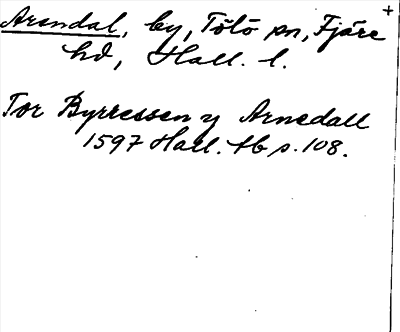 Arendal, by, Tölö sn, Fjäre +
hd, Hall. l.
Tor Byrressen y Arnedall
1597 Hall. tb s. 108.